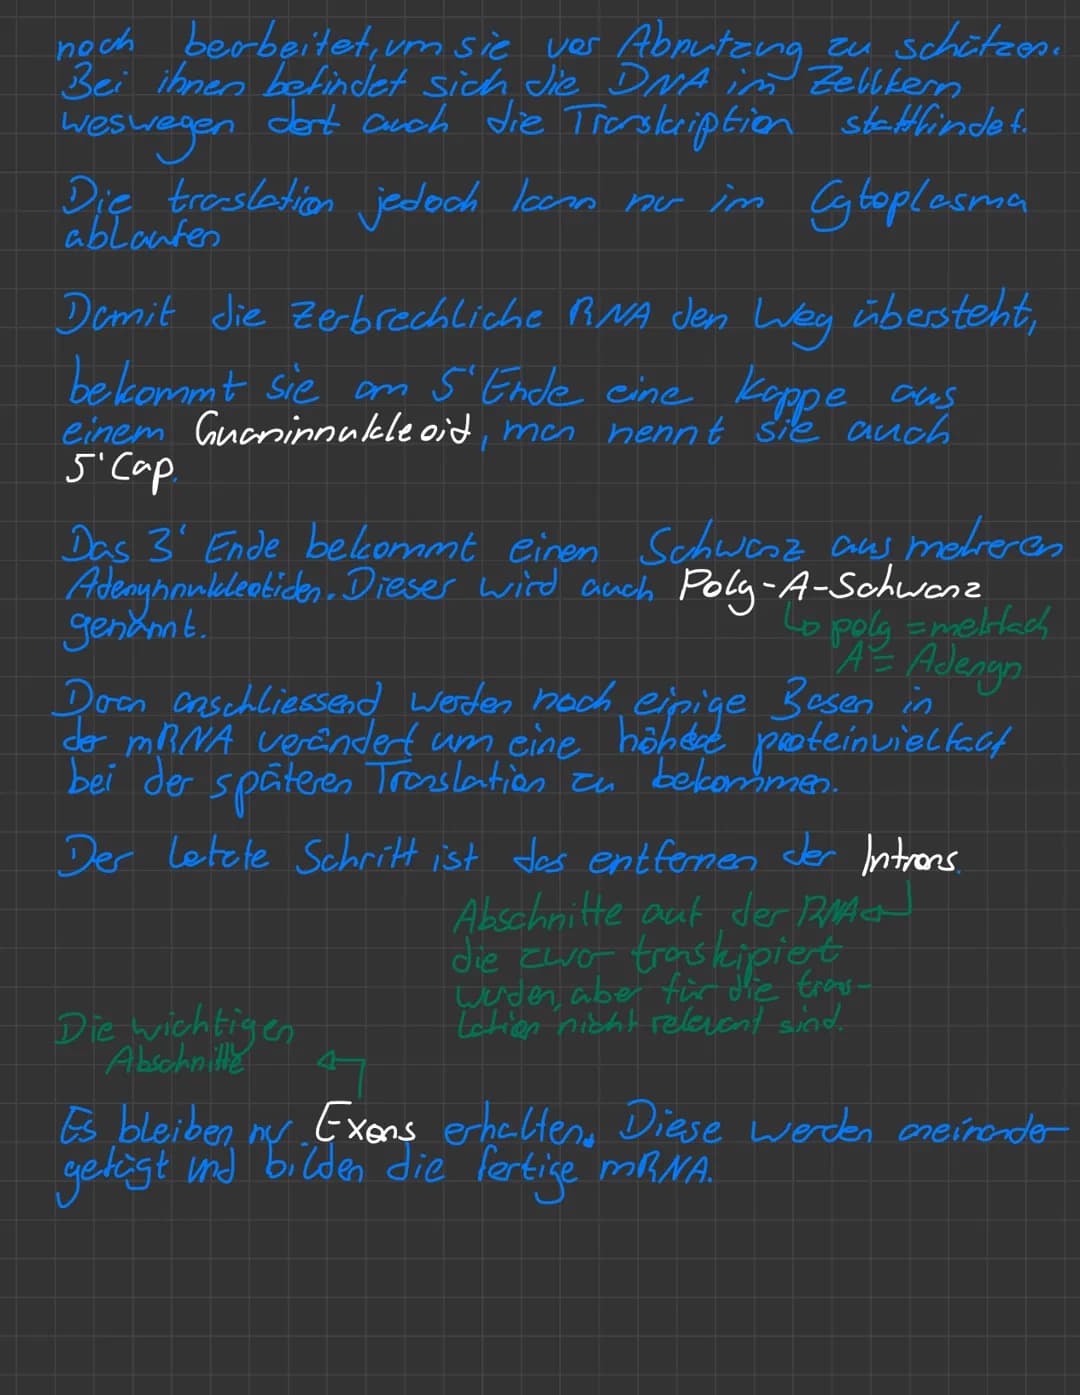 noch bearbeitet, um sie vor Abnutzung zu schützen.
Bei ihnen befindet sich die DNA im Zellkern
weswegen dort auch die Transkription stattfindet.
Die traslation jedoch kann nur im Cytoplasma
ablaufen
Damit die zerbrechliche RNA den Weg übersteht,
bekommt sie am 5' Ende eine Kappe aus
einem Guaninnukleoid, man nennt sie auch
5' Cap.
Das 3' Ende bekommt einen Schwanz aus mehreren
Adenynnukleotiden. Dieser wird auch Poly-A-Schwanz
genannt.
↳ poly = mehrfach
A = Adenyn
Dann anschliessend werden noch einige Basen in
der mRNA verändert um eine höhere proteinvielfalt
bei der späteren Translation zu bekommen.
Der letzte Schritt ist das entfernen der Introns.
Abschnitte auf der RNA
die zwar transkipiert
wurden, aber für die trans-
lation nicht relevant sind.
Die wichtigen
Abschnitte
Es bleiben nur Exons erhalten. Diese werden aneinander
gefügt und bilden die fertige mRNA.